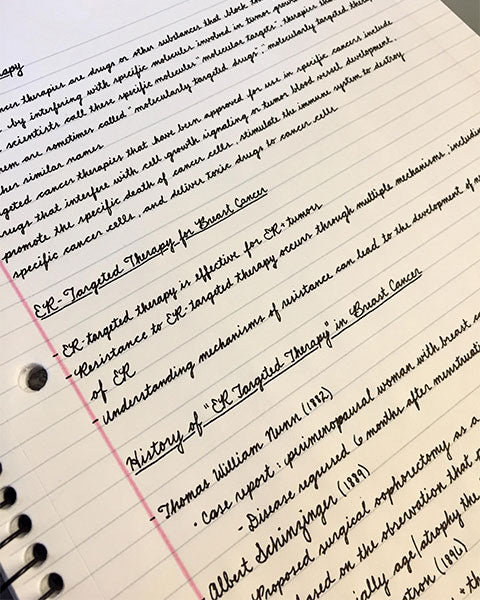 apy
cer therapies are drugs or other substances that block the
by interfering with specific molecules involved in tumor grow
scientists call these specific molecules "molecular targets", therapies tha
em are sometimes called "molecularly targeted drugs", "molecularly targeted therap
her similar names
geted cancer therapies that have been approved for use in specific cancers include
rugs that interfere with cell growth signaling or tumor blood vessel development,
promote the specific death of cancer cells, stimulate the immune system to destroy
specific cancer cells, and deliver toxic drugs to cancer cells
ER-Targeted Therapy for Breast Cancer
- ER-targeted therapy is effective for ER+ tumors
- Resistance to ER-targeted therapy occurs through multiple mechanisms, includin
of ER
- Understanding mechanisms of resistance can lead to the development of n
History of "ER Targeted Therapy" in Breast Cancer
- Thomas William Nunn (1882)
• Case report: perimenopausal woman with breast c
- Disease regressed 6 months after menstruati
- Albert Schinzinger (1889)
Proposed surgical oophorectomy as a
based on the observation that
ially age/atrophy the
tson (1896)
+ th